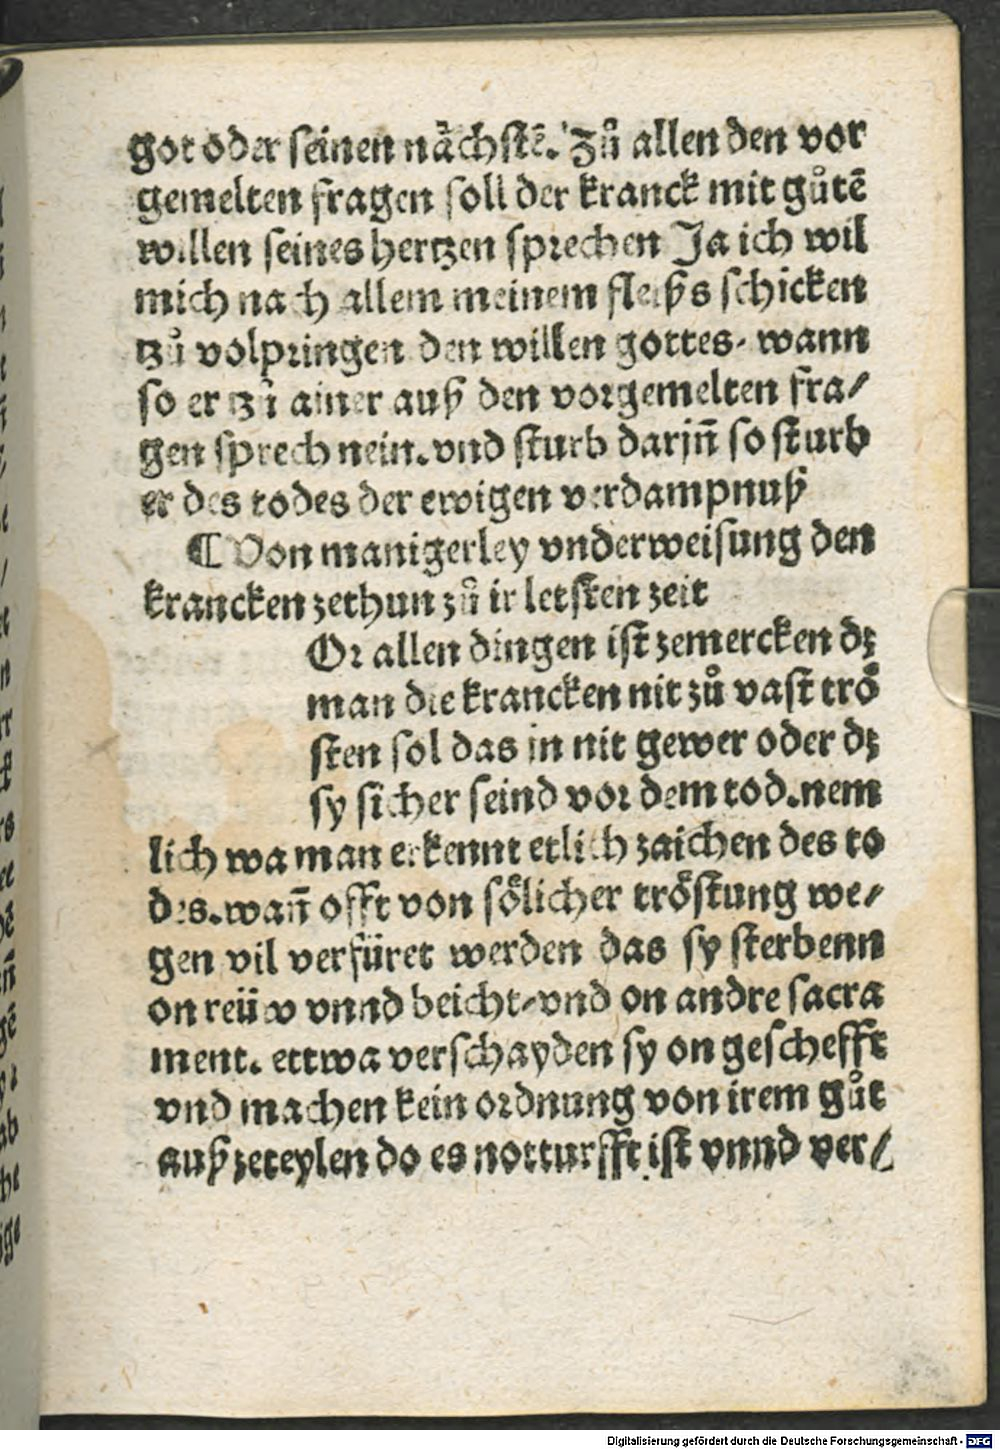 got oder seinen nächstē. Zů allen den vor
gemelten fragen soll der kranck mit gůtē
willen seines hertzen sprechen Ja ich wil
mich nach allem meinem fleißs schicken
tzů volpringen den willen gottes. wann
so er tzů ainer auß den vorgemelten fra/
gen sprech nein. vnd sturb darjn̄ so sturb
er des todes der ewigen verdampnuß
¶ Von manigerley vnderweisung den
krancken zethun zů ir letsten zeit
Or allen dingen ist zemercken dz
man die krancken nit zů vast trö
sten sol das in nit gewer oder dz
sy sicher seind vor dem tod. nem
lich wa man erkennt etlich zaichen des to
des. wan̄ offt von sölicher tröstung we/
gen vil verfüret werden das sy sterbenn
on reüw vnnd beicht/ vnd on andre sacra
ment. ettwa verschayden sy on geschefft
vnd machen kein ordnung von irem gůt
auß zeteylen do es notturfft ist vnnd ver/
Digitalisierung gefördert durch die Deutsche Forschungsgemeinschaft - DFG